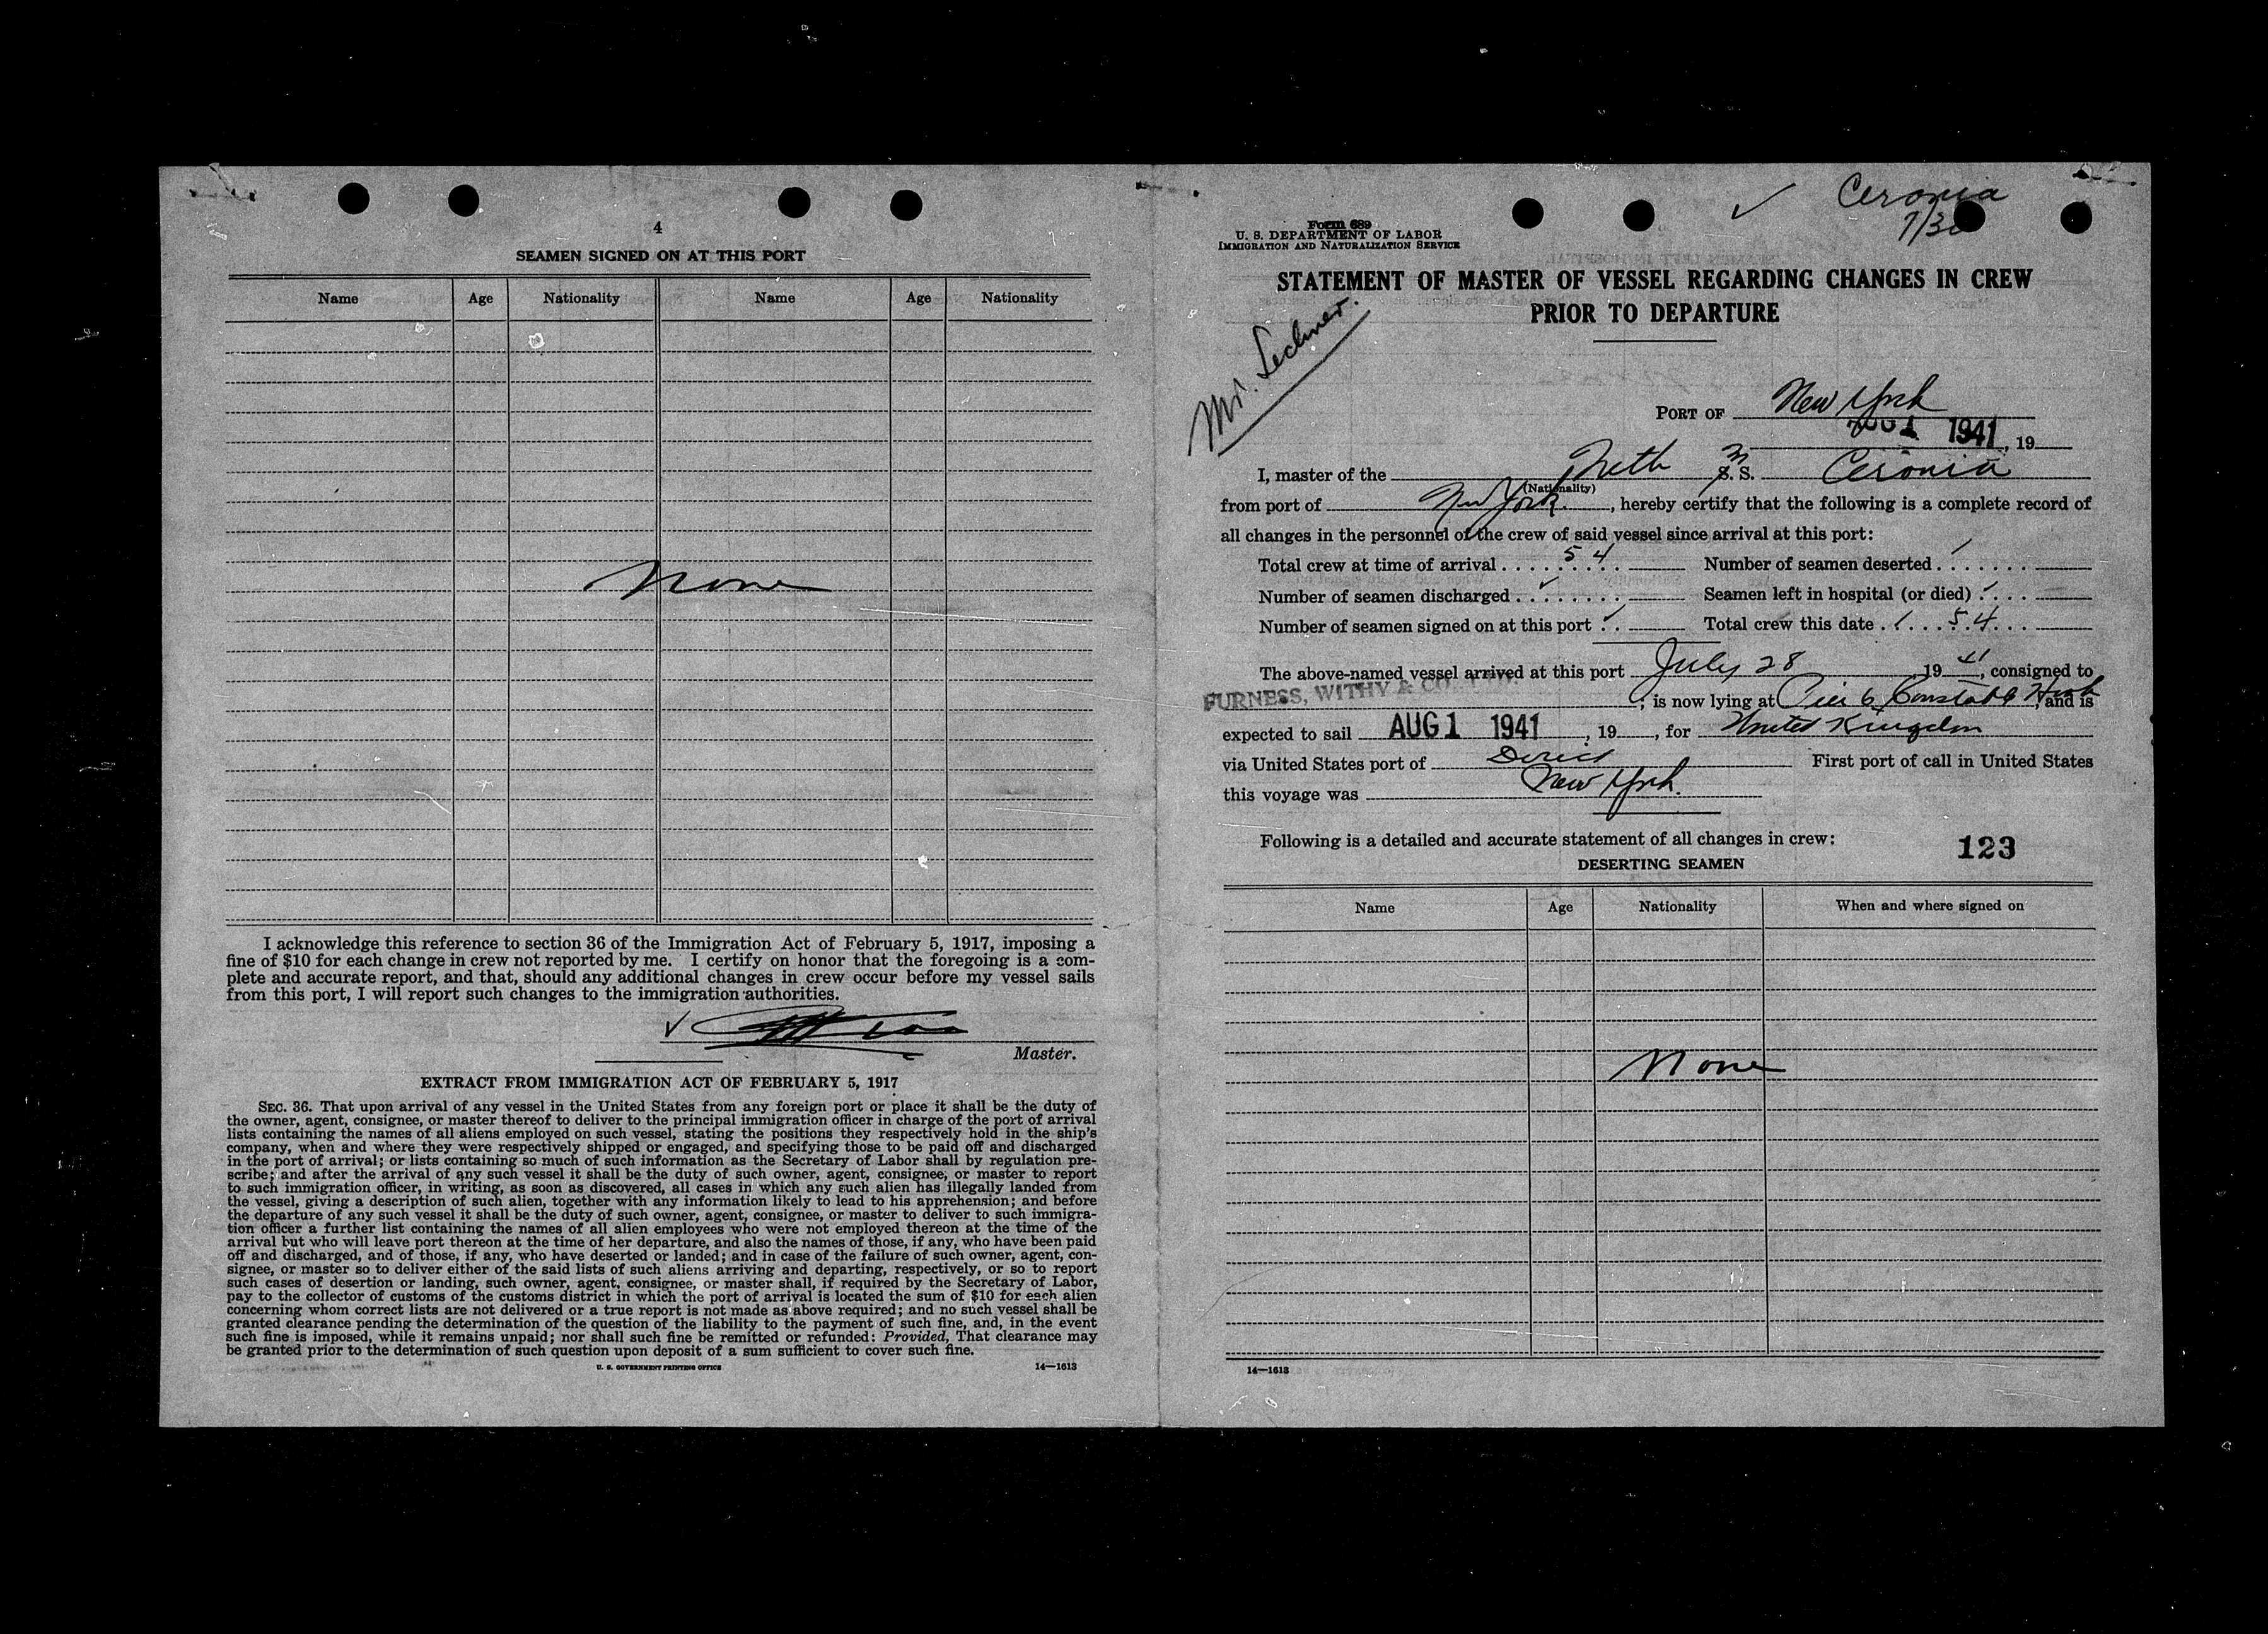 4
SEAMEN SIGNED ON AT THIS PORT
Name Age Nationality Name Age Nationality
None
I acknowledge this reference to section 36 of the Immigration Act of February 5, 1917, imposing a
fine of $10 for each change in crew not reported by me. I certify on honor that the foregoing is a com-
plete and accurate report, and that, should any additional changes in crew occur before my vessel sails
from this port, I will report such changes to the immigration authorities.
Master.
EXTRACT FROM IMMIGRATION ACT OF FEBRUARY 5, 1917
SEC. 36. That upon arrival of any vessel in the United States from any foreign port or place it shall be the duty of
the owner, agent, consignee, or master thereof to deliver to the principal immigration officer in charge of the port of arrival
lists containing the names of all aliens employed on such vessel, stating the positions they respectively hold in the ship's
company, when and where they were respectively shipped or engaged, and specifying those to be paid off and discharged
in the port of arrival; or lists containing so much of such information as the Secretary of Labor shall by regulation pre-
scribe; and after the arrival of any such vessel it shall be the duty of such owner, agent, consignee, or master to report
to such immigration officer, in writing, as soon as discovered, all cases in which any such alien has illegally landed from
the vessel, giving a description of such alien, together with any information likely to lead to his apprehension; and before
the departure of any such vessel it shall be the duty of such owner, agent, consignee, or master to deliver to such immigra-
tion officer a further list containing the names of all alien employees who were not employed thereon at the time of the
arrival but who will leave port thereon at the time of her departure, and also the names of those, if any, who have been paid
off and discharged, and of those, if any, who have deserted or landed; and in case of the failure of such owner, agent, con-
signee, or master so to deliver either of the said lists of such aliens arriving and departing, respectively, or so to report
such cases of desertion or landing, such owner, agent, consignee, or master shall, if required by the Secretary of Labor,
pay to the collector of customs of the customs district in which the port of arrival is located the sum of $10 for each alien
concerning whom correct lists are not delivered or a true report is not made as above required; and no such vessel shall be
granted clearance pending the determination of the question of the liability to the payment of such fine, and, in the event
such fine is imposed, while it remains unpaid; nor shall such fine be remitted or refunded: Provided, That clearance may
be granted prior to the determination of such question upon deposit of a sum sufficient to cover such fine.
U. S. GOVERNMENT PRINTING OFFICE 14—1613
Ceronia
7/30
Form 689
U. S. DEPARTMENT OF LABOR
IMMIGRATION AND NATURALIZATION SERVICE
STATEMENT OF MASTER OF VESSEL REGARDING CHANGES IN CREW
PRIOR TO DEPARTURE
Mr. Lechner.
PORT OF New York
AUG 1 1941, 19
I, master of the Neth M S. S. Ceronia
(Nationality)
from port of New York., hereby certify that the following is a complete record of
all changes in the personnel of the crew of said vessel since arrival at this port:
Total crew at time of arrival 54 Number of seamen deserted
Number of seamen discharged Seamen left in hospital (or died)
Number of seamen signed on at this port Total crew this date 54
The above-named vessel arrived at this port July 28, 1941, consigned to
FURNESS, WITHY & CO. LTD., is now lying at Pier 6 Constable Hook, and is
expected to sail AUG 1 1941, 19, for United Kingdom
via United States port of Direct First port of call in United States
this voyage was New York.
Following is a detailed and accurate statement of all changes in crew:
123
DESERTING SEAMEN
Name Age Nationality When and where signed on
None
14—1613